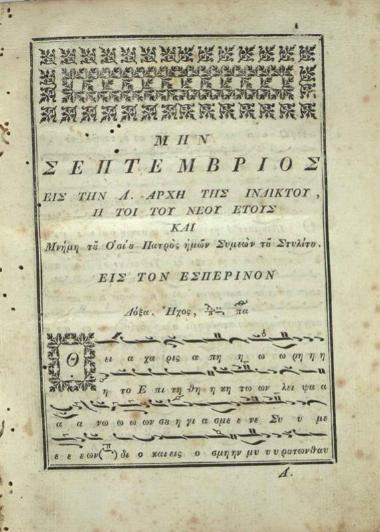 ΜΗΝ
ΣΕΠΤΕΜΒΡΙΟΣ
ΕΙΣ ΤΗΝ Α. ΑΡΧΗ ΤΗΣ ΙΝΔΙΚΤΟΥ,
Η ΤΟΙ ΤΟΥ ΝΕΟΥ ΕΤΟΥΣ
ΚΑΙ
Μνήμη τȣ Ὁσίȣ Πατρὸς ἡμῶν Συμεὼν τȣ Στυλίτȣ.
ΕΙΣ ΤΟΝ ΕΣΠΕΡΙΝΟΝ
Δόξα. Ἦχος, πα
Θ ει α χα ρις α πη η ω ω ρη η η
η το Ε πι τη θη η κη τω ων λει ψα α
α α νω ω ω ων σȣ η γι α σμε ε νε Συ υ με
ε ε ε ων δι ο και εις ο σμη ην μυ υ υ ρω των θαυ
Α.